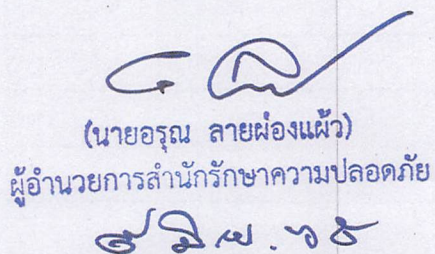 (นายอรุณ ลายผ่องแผ้ว)
ผู้อำนวยการสำนักรักษาความปลอดภัย
๙ มิ.ย. ๖๕